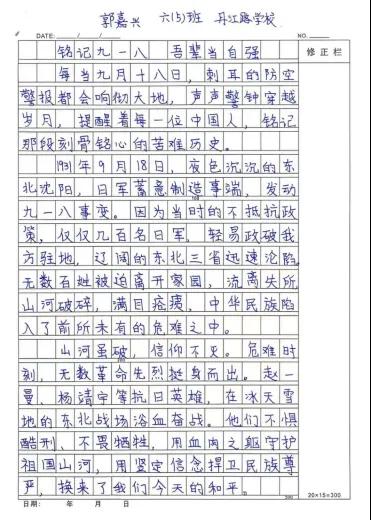 郭嘉兴 六(5)班 丹江路学校
DATE: / /
NO.
铭记九一八 吾辈当自强
修正栏
每当九月十八日,刺耳的防空
警报都会响彻大地,声声警钟穿越
岁月,提醒着每一位中国人,铭记
那段刻骨铭心的苦难历史。
1931年9月18日,夜色沉沉的东
北沈阳,日军蓄意制造事端,发动
100
九一八事变。因为当时的不抵抗政
策,仅仅几百名日军。轻易政破我
方驻地,辽阔的东北三省迅速沦陷
无数百姓被迫离开家园,流离失所
山河破碎,满目疮痍,中华民族陷
入了前所未有的危难之中。
山河虽破,信仰不灭。危难时
200
刻,无数革命先烈挺身而出。赵一
曼、杨靖宇等抗日英雄,在冰天雪
地的东北战场浴血奋战。他们不惧
酷刑、不畏牺牲,用血肉之躯守护
祖国山河,用坚定信念捍卫民族尊
严,换来了我们今天的和平。
300
日期: 年 月 日
20×15=300